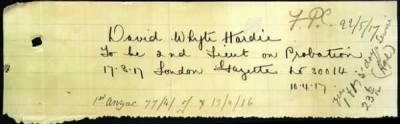 F.P.C. 22/5/17
David Whyte Hardie
To be 2nd Lieut on Probation
17-3-17 London Gazette No 30014
10.4.17.
1st Anzac 77/4/ of 13/9/16